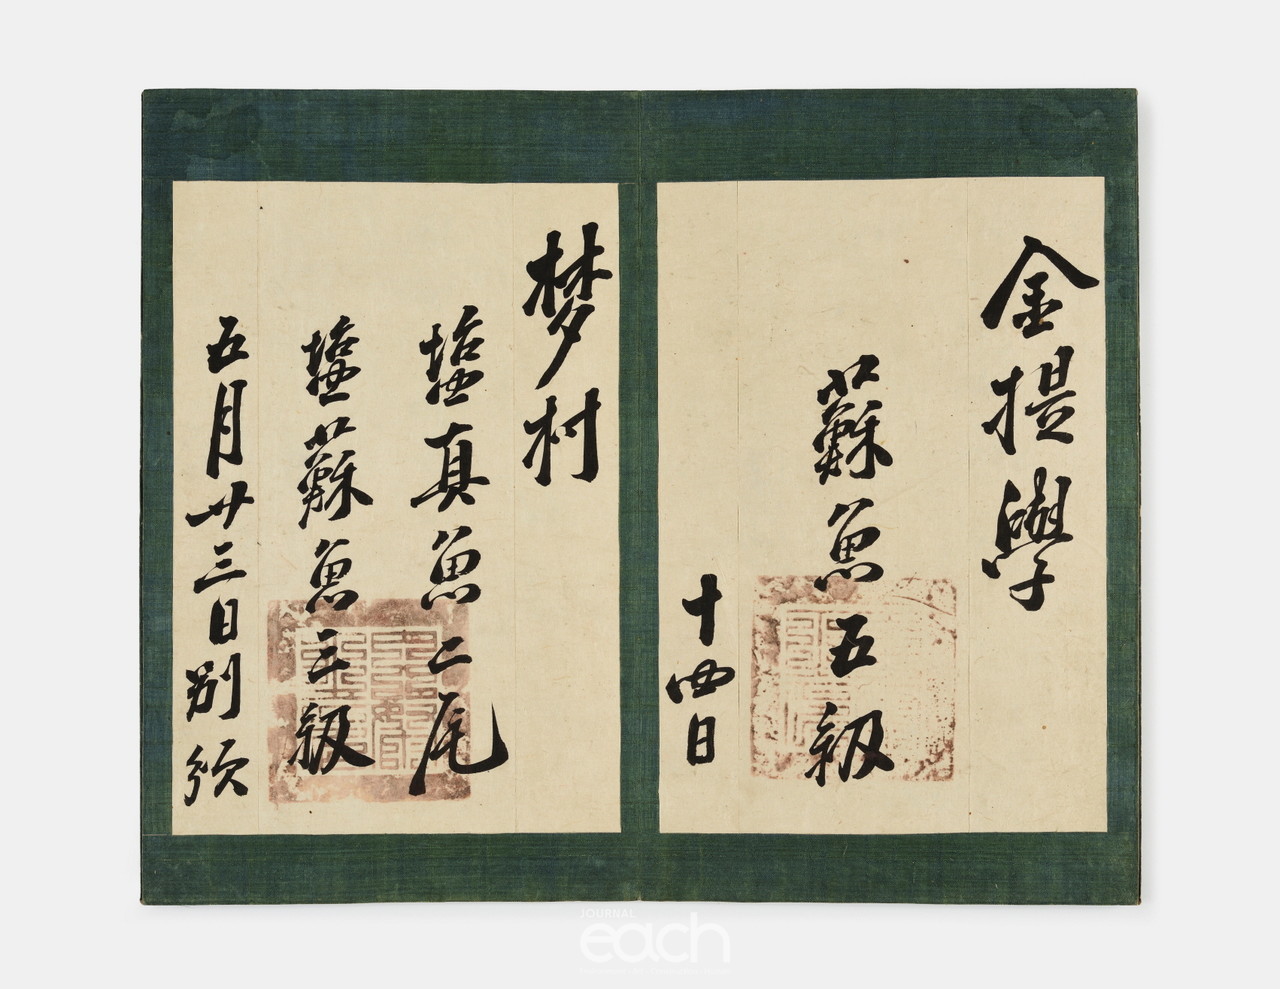 金提學
蘇魚五級
十四日
梦村
塩真魚二尾
塩蘇魚三級
五月廿三日別須
JOURNAL
each